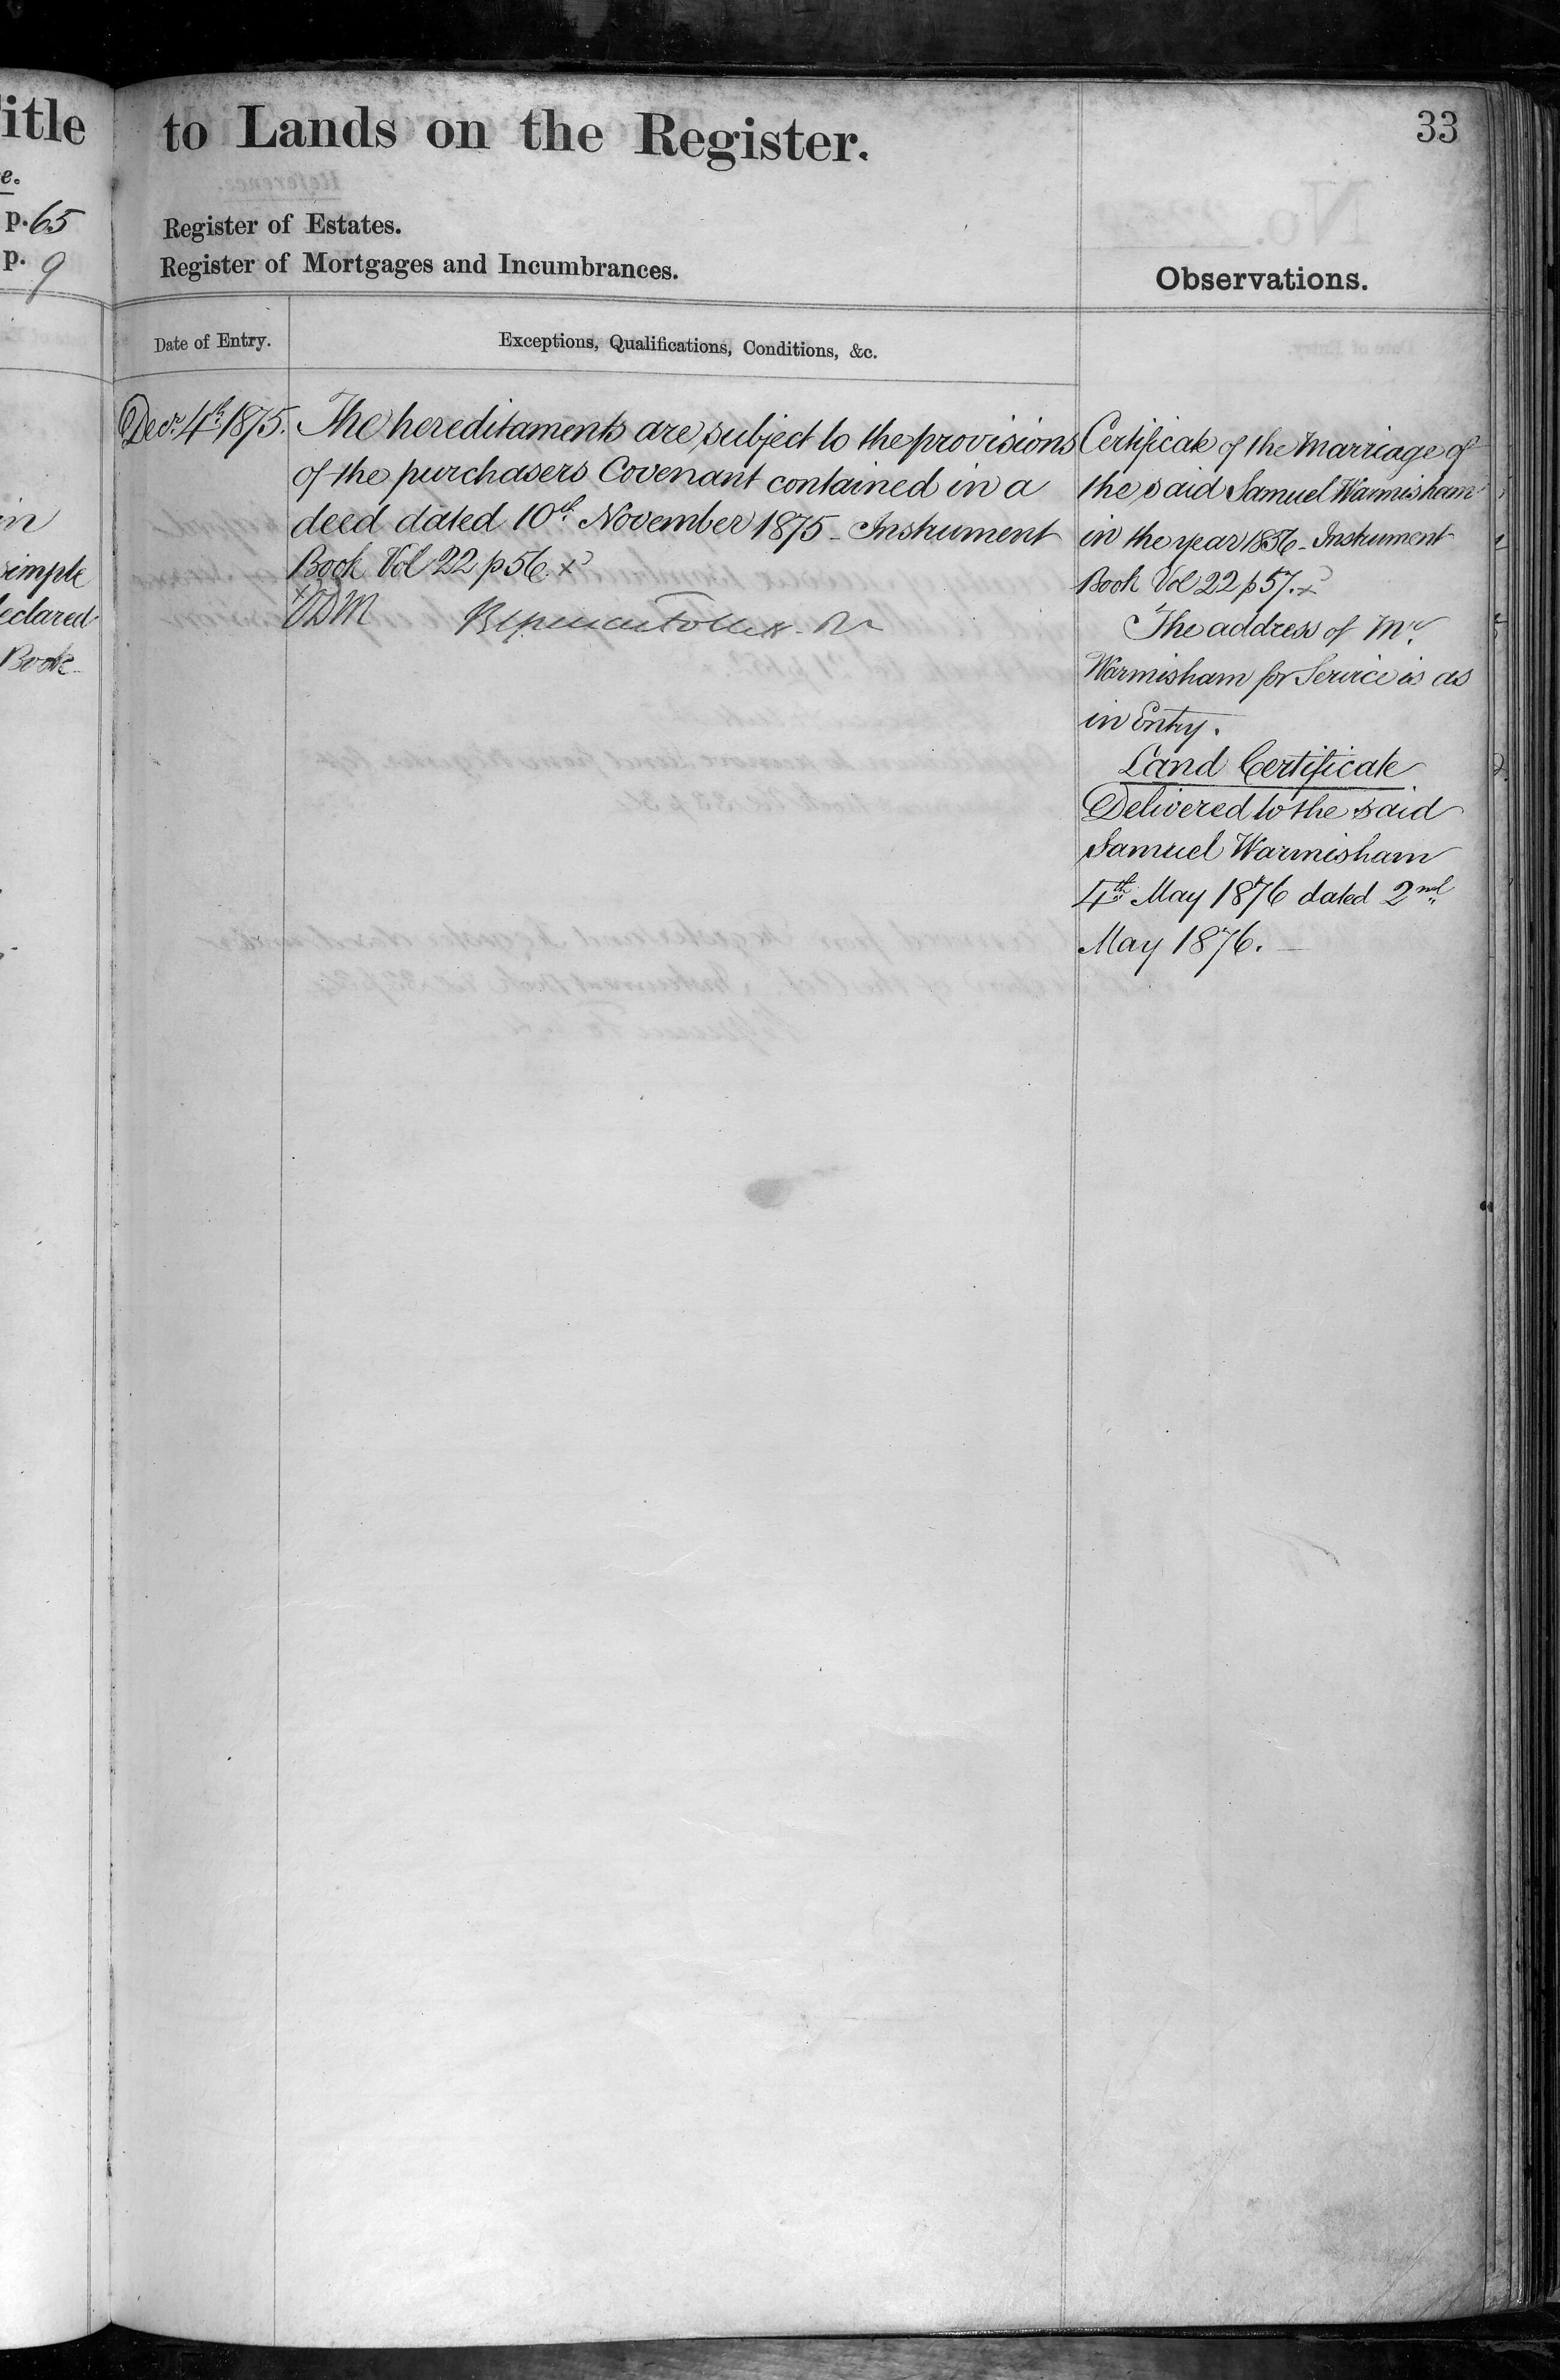 itle
e.
p. 65
p. 9
in
simple
declared
Book
to Lands on the Register.
33
Register of Estates.
Register of Mortgages and Incumbrances.
Observations.
Date of Entry.
Exceptions, Qualifications, Conditions, &c.
Decr. 4th 1875.
The hereditaments are subject to the provisions
of the purchasers Covenant contained in a
deed dated 10th November 1875 - Instrument
Book Vol 22 p 56. x
Certificate of the Marriage of
the said Samuel Warmisham
in the year 1856 - Instrument
Book Vol 22 p 57. x
The address of Mr.
Warmisham for Service is as
in Entry.
Land Certificate
Delivered to the said
Samuel Warmisham
4th May 1876 dated 2nd
May 1876. —